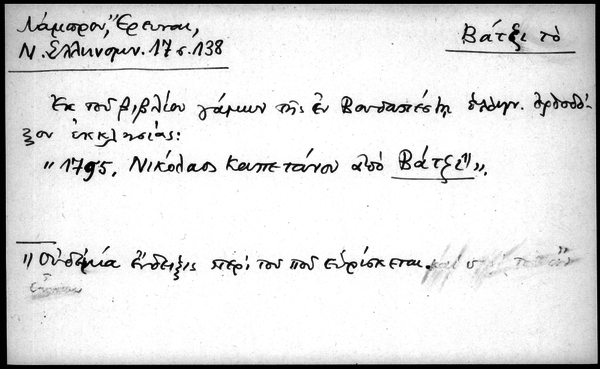 Λάμπρου, Ἔρευναι,
Ν. Ἑλληνομν. 17 σ. 138
Βάτξι τὸ
Ἐκ τοῦ βιβλίου γάμων τῆς ἐν Βουδαπέστῃ ἑλλην. ὀρθοδό-
ξου ἐκκλησίας:
"1795, Νικόλαος Καπετάνου ἀπὸ Βάτξι¹⁾".
1) Οὐδεμία ἔνδειξις περὶ τοῦ ποῦ εὑρίσκεται.